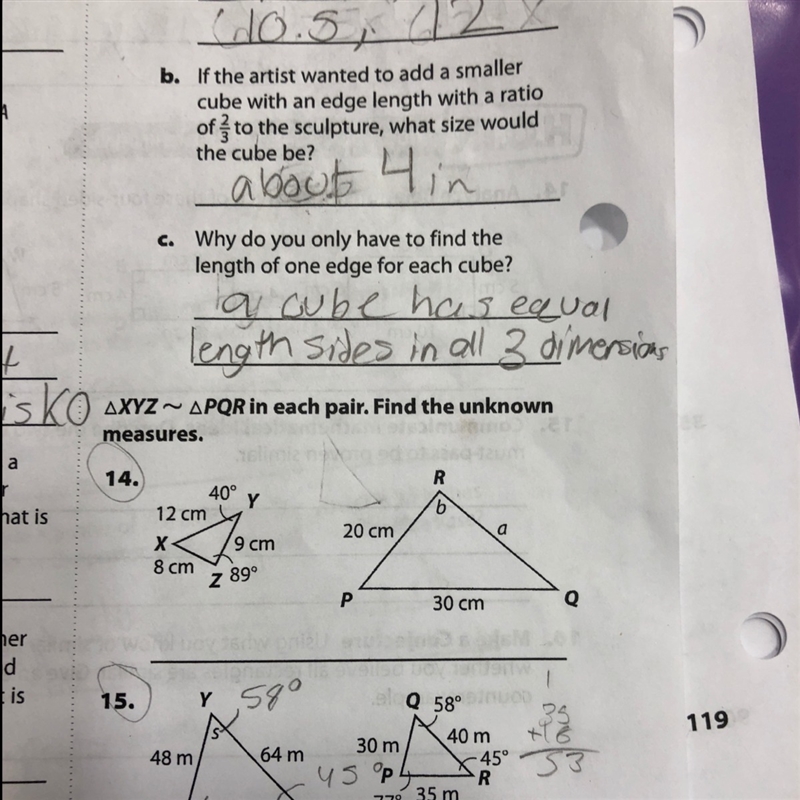 b. If the artist wanted to add a smaller
cube with an edge length with a ratio
of 2/3 to the sculpture, what size would
the cube be?
about 4 in
c. Why do you only have to find the
length of one edge for each cube?
a cube has equal
length sides in all 3 dimensions
△XYZ ~ △PQR in each pair. Find the unknown
measures.
a
hat is
14.
40°
Y
12 cm
X
9 cm
8 cm
Z
89°
R
b
20 cm
a
P
30 cm
Q
d
t is
15.
Y
58°
s
48 m
64 m
45°
Q
58°
30 m
40 m
45°
P
R
77°
35 m
1
35
+18
53
119